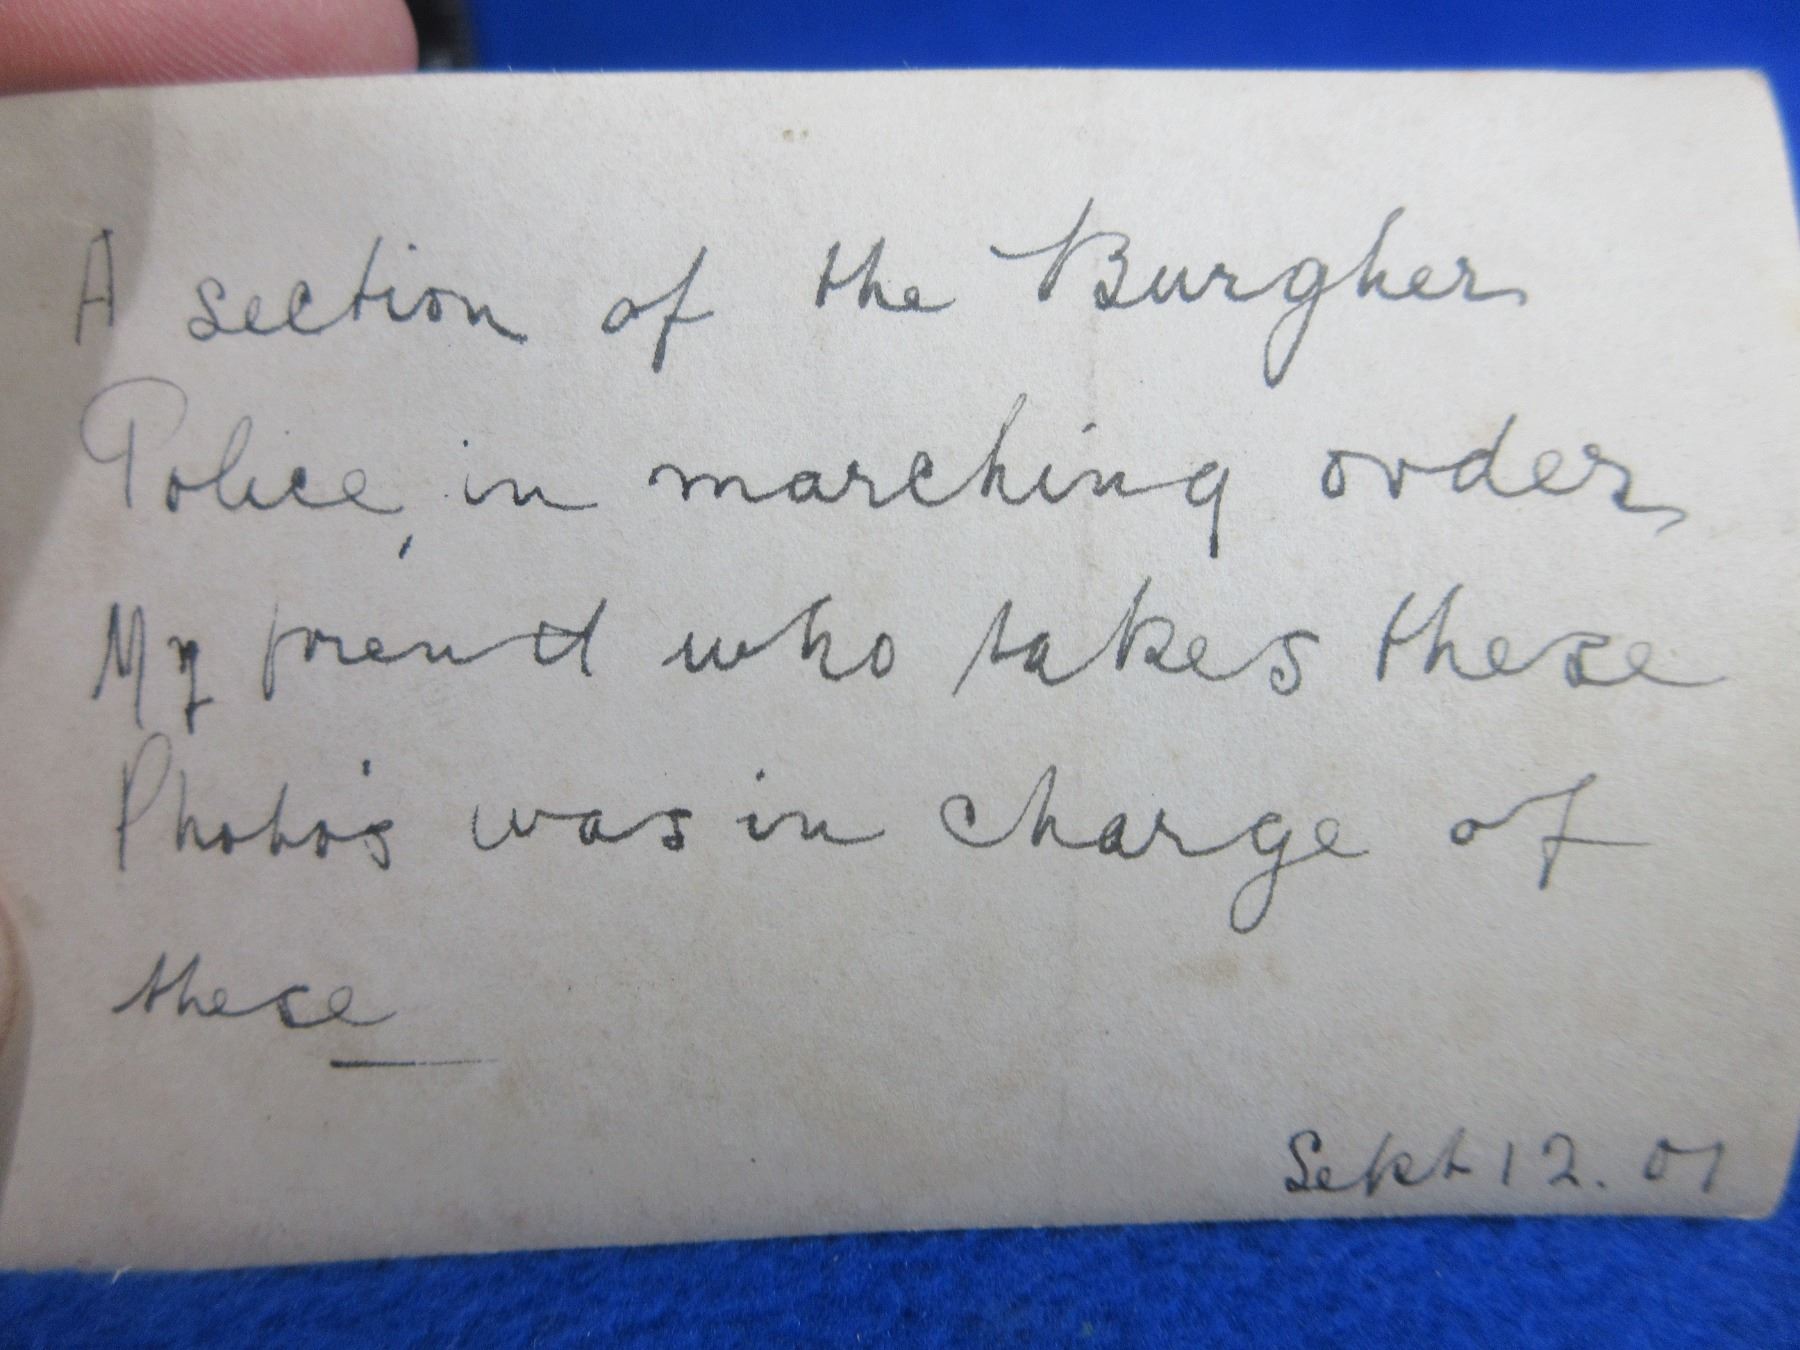 A section of the Burgher
Police, in marching order
My friend who takes these
Photo's was in charge of
these
Sept 12. 01